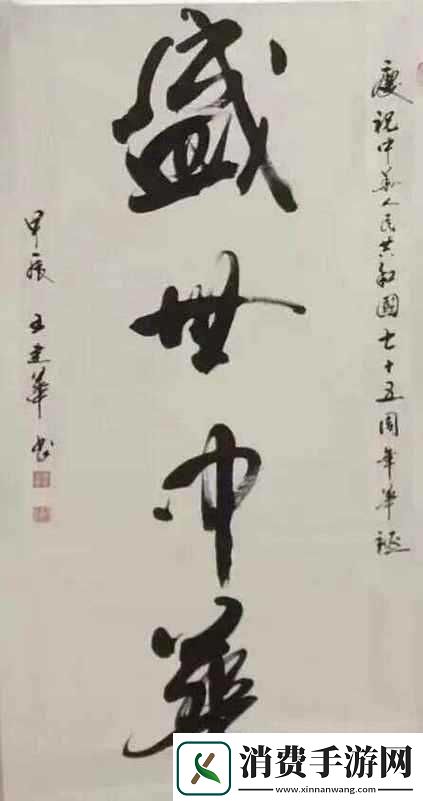 慶祝中华人民共和國七十五周年华诞
盛世中華
甲辰 王建華书
消费手游网
www.xinnanwang.com